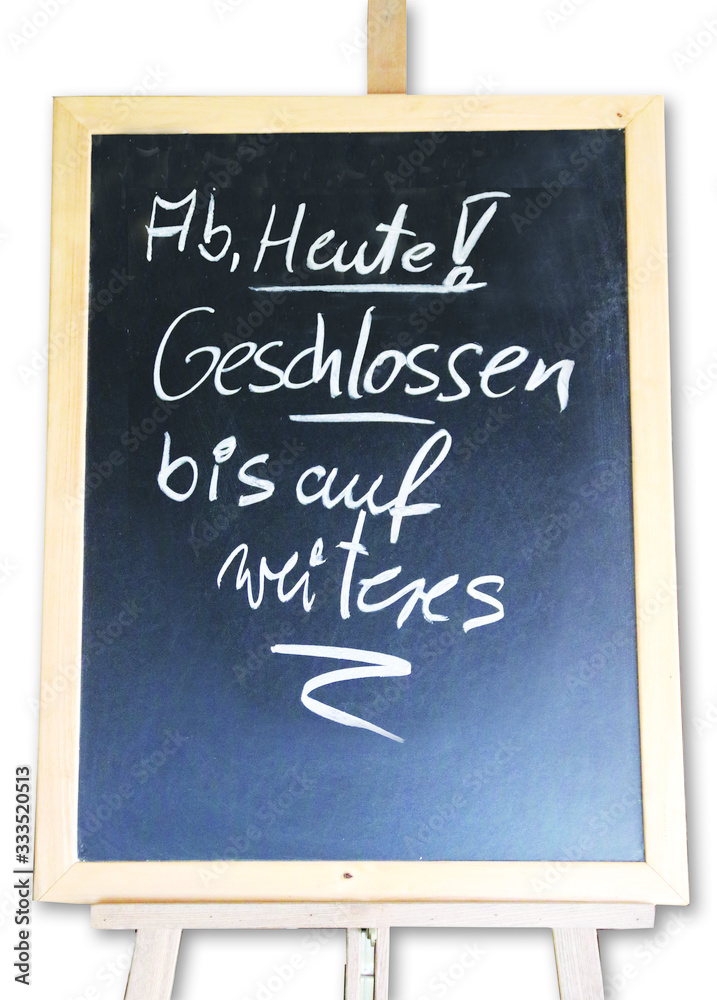 Ab, Heute!
Geschlossen
bis auf
weiteres
Adobe Stock | #333520513